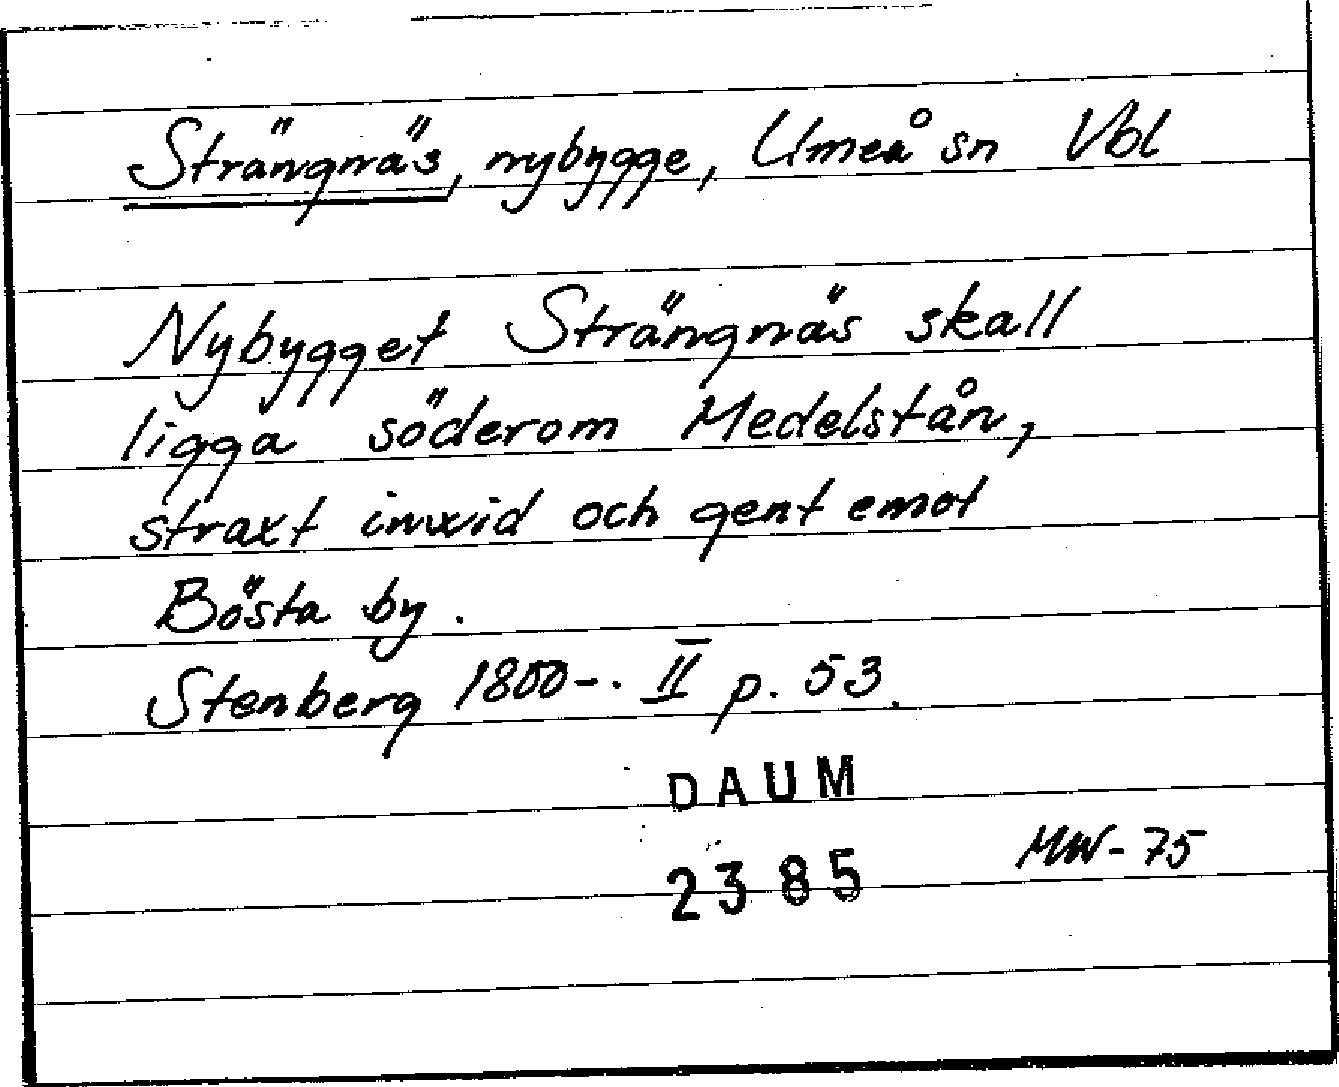 Strängnäs, nybygge, Umeå sn Vbl
Nybygget Strängnäs skall
ligga söderom Medelstån,
straxt invid och gent emot
Bösta by.
Stenberg 1800-. II p. 53.
DAUM
2385
MW-75